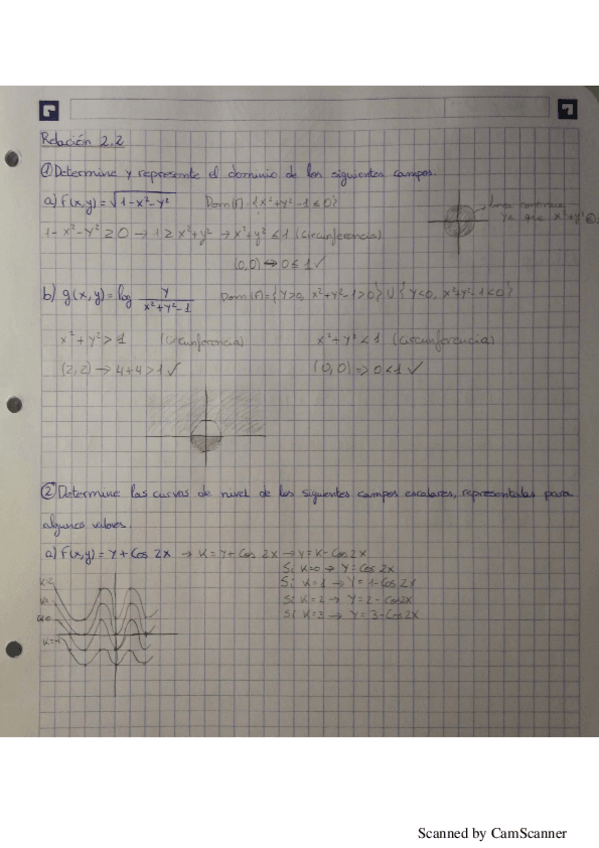 Relación 2.2
① Determine y represente el dominio de los siguientes campos.
a) f(x,y) = √1-x²-y²   Dom(f) = {x²+y²-1 ≤ 0}
ya que x²+y²
1-x²-y² ≥ 0 → 1 ≥ x²+y² → x²+y² ≤ 1 (circunferencia)
(0,0) → 0 ≤ 1 ✓
b) g(x,y) = log y/(x²+y²-1)   Dom(f) = {y>0, x²+y²-1>0} ∪ {y<0, x²+y²-1<0}
x²+y² > 1 (circunferencia)   x²+y² < 1 (circunferencia)
(2,2) → 4+4 > 1 ✓   (0,0) => 0 < 1 ✓
② Determine las curvas de nivel de los siguientes campos escalares, representalas para
algunos valores.
a) f(x,y) = y + cos 2x → k = y + cos 2x → y = k - cos 2x
Si k=0 → y = cos 2x
Si k=1 → y = 1 - cos 2x
Si k=2 → y = 2 - cos 2x
Si k=3 → y = 3 - cos 2x
Scanned by CamScanner